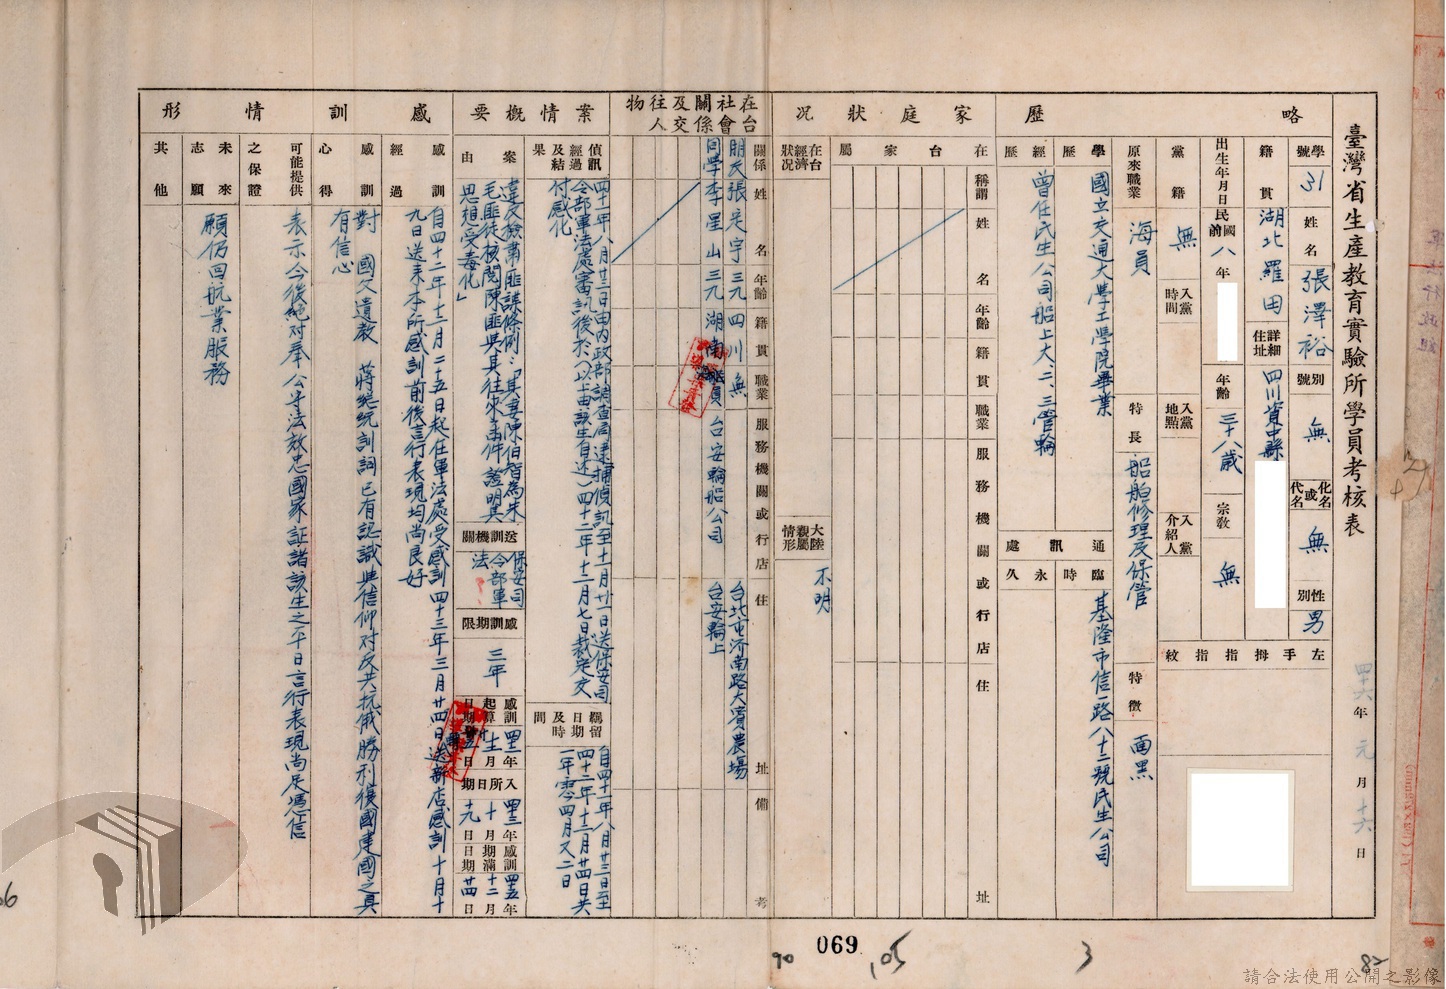 臺灣省生產教育實驗所學員考核表
年 元 月 十六 日
略歷
學號 31 姓名 張澤裕 別號 無 化名或代名 無 性別 男
籍貫 湖北羅田 詳細住址 四川資中縣
出生年月日 民國前 八 年 年齡 三十八歲 宗教 無
黨籍 無 入黨時間 入黨地點 入黨介紹人
左手拇指指紋
原來職業 海員 特長 船舶修理及保管 特徵 面黑
學歷 國立交通大學工學院畢業
經歷 曾任民生公司船上大、二、三管輪
通訊處 臨時 基隆市信一路八十二號民生公司
永久
家庭狀況
在台家屬 稱謂 姓名 年齡 籍貫 職業 服務機關或行店 住址
在台經濟狀況
大陸親屬情形 不明
在台社會關係及交往人物
關係 姓名 年齡 籍貫 職業 服務機關或行店 住址 備考
朋友 張定宇 三九 四川 無 台北屯济南路大濱農場
同學 李星山 三九 湖南 船員 台安輪船公司 台安輪上
案情概要
偵訊經過及結果 四十一年八月廿三日由內政部調查局逮捕偵訊至十一月廿一日送保安司
令部軍法處審訊後於(以上由該生自述)四十二年十二月七日裁定交
付感化
羈留日期及時間 自四十一年八月廿三日至
四十二年十二月廿四日共
一年零四月又二日
案由 違反檢肅匪諜條例:「其妻陳伯智為朱
毛匪徒核閱陳匪與其往來函件證明其
思想受毒化」
送訓機關 保安司
令部軍
法
感訓期限 三年
感訓起算日期 年 月 日
入所日期 年 十月 十九日
感訓期滿日期 四五年 十二月 廿四日
感訓情形
感訓經過 自四十二年十二月二十五日起在軍法處受感訓四十三年三月廿四日送新店感訓十月十
九日送来本所感訓前後言行表現均尚良好
感訓心得 對 國父遺教 蔣總統訓詞已有認識與信仰对反共抗俄勝利復國建國之具
有信心
可能提供之保證 表示今後絕对奉公守法效忠國家証諸該生之平日言行表現尚足憑信
未來志願 願仍回航業服務
其他
069
90
105
3
82
請合法使用公開之影像